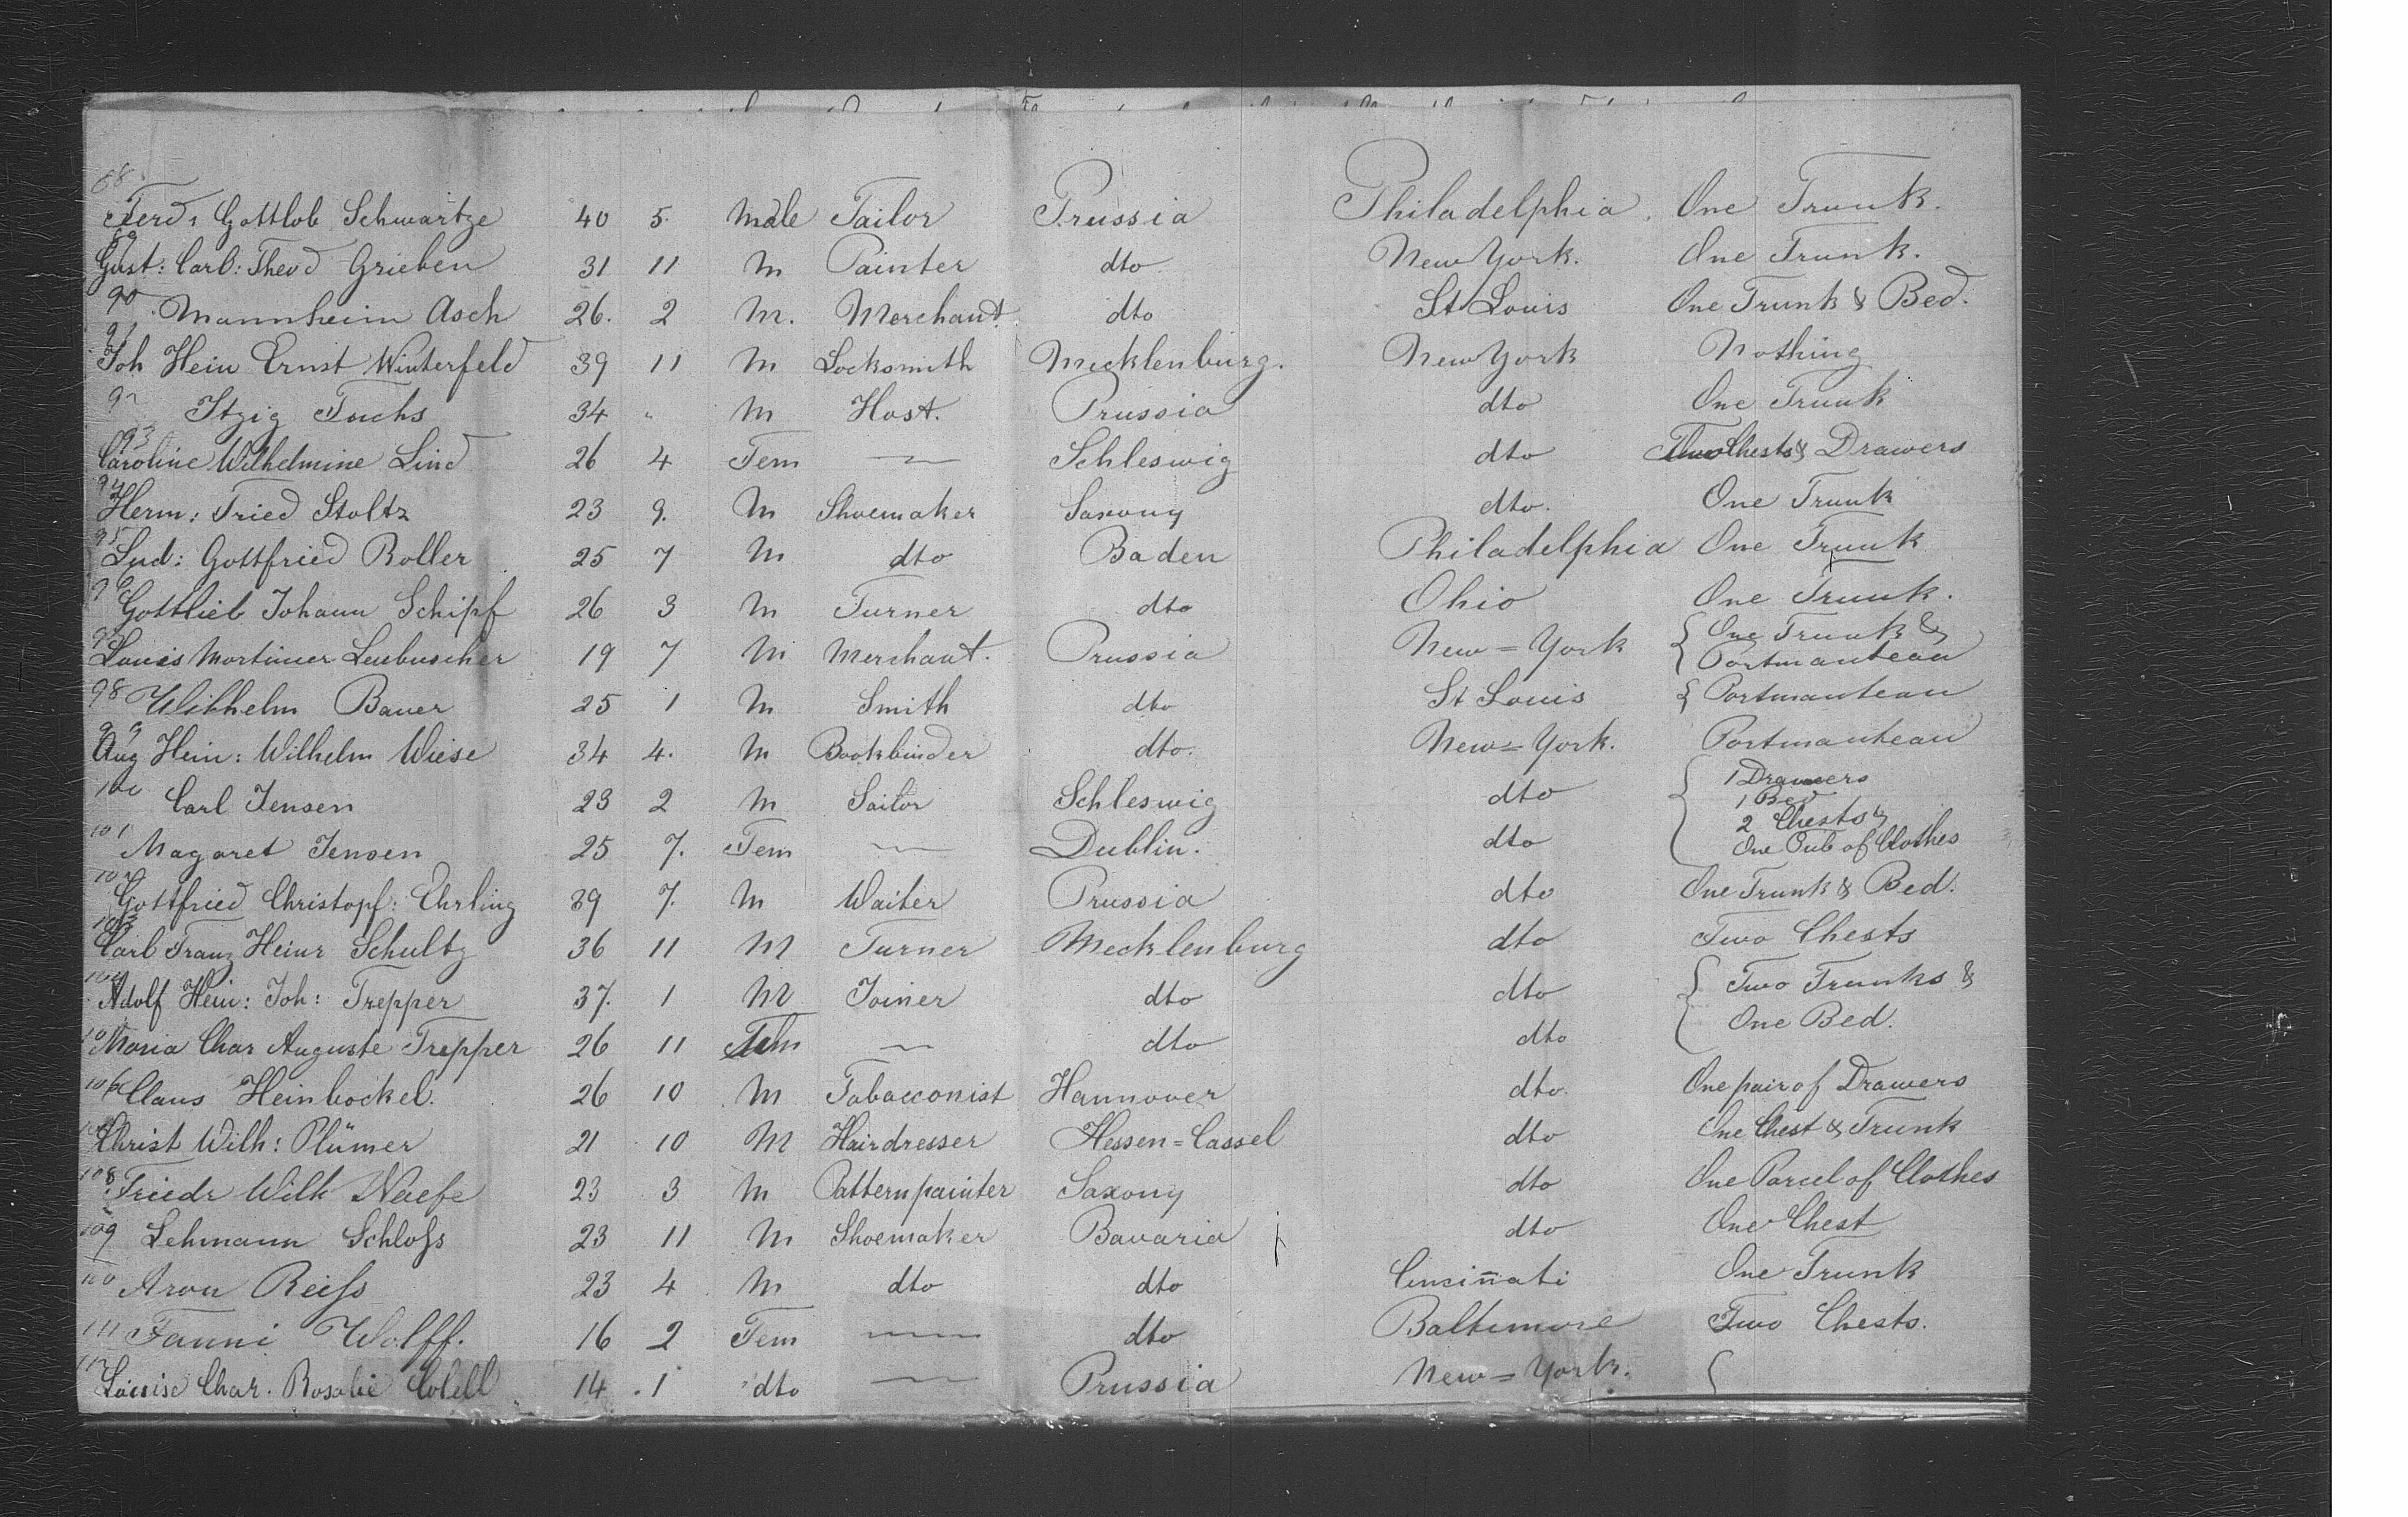 88
Ferd: Gottlob Schwartze 40 5. Male Tailor Prussia Philadelphia. One Trunk.
89
Gust: Carl: Theod Grieben 31 11 M Painter dto New York. One Trunk.
90 Mannheim Asch 26. 2 M. Merchant dto St Louis One Trunk & Bed.
91
Joh Hein Ernst Winterfeld 39 11 M Locksmith Mecklenburg. New York Nothing
92 Itzig Fuchs 34 " M Host. Prussia dto One Trunk
93
Caroline Wilhelmine Lind 26 4 Fem — Schleswig dto Two Chests & Drawers
94
Herm: Fried Stoltz 23 9. M Shoemaker Saxony dto. One Trunk
95
Lud: Gottfried Roller 25 7 M dto Baden Philadelphia One Trunk
96
Gottlieb Johann Schipf 26 3 M Turner dto Ohio One Trunk.
97
Louis Mortimer Leubuscher 19 7 M Merchant. Prussia New=York { One Trunk & Portmanteau
98 Wilhelm Bauer 25 1 M Smith dto St Louis { Portmanteau
99
Aug Hein: Wilhelm Wiese 34 4. M Bookbinder dto. New=York. Portmanteau
100 Carl Jensen 23 2 M Sailor Schleswig dto { 1 Drawers
1 Bed
2 Chests &
101 Magaret Jensen 25 7. Fem — Dublin. dto One Tub of Clothes
102
Gottfried Christopf: Ehrling 39 7. M Waiter Prussia dto One Trunk & Bed.
103
Carl Franz Heinr Schultz 36 11 M Turner Mecklenburg dto Two Chests
104
Adolf Hein: Joh: Trepper 37. 1 M Joiner dto dto { Two Trunks &
105 Maria Char Auguste Trepper 26 11 Fem — dto dto One Bed.
106 Claus Heinbockel. 26 10 M Tobacconist Hannover dto. One pair of Drawers
107 Christ Wilh: Plümer 21 10 M Hairdresser Hessen=Cassel dto One Chest & Trunk
108 Friedr Wilh Naefe 23 3 M Pattern painter Saxony dto One Parcel of Clothes
109 Lehmann Schloſs 23 11 M Shoemaker Bavaria dto One Chest
110 Aron Reiſs 23 4 M dto dto Cincin̄ati One Trunk
111 Fanni Wolff. 16 2 Fem — dto Baltimore Two Chests.
112
Louise Char. Rosalie 14 . 1 dto — Prussia New=York. {